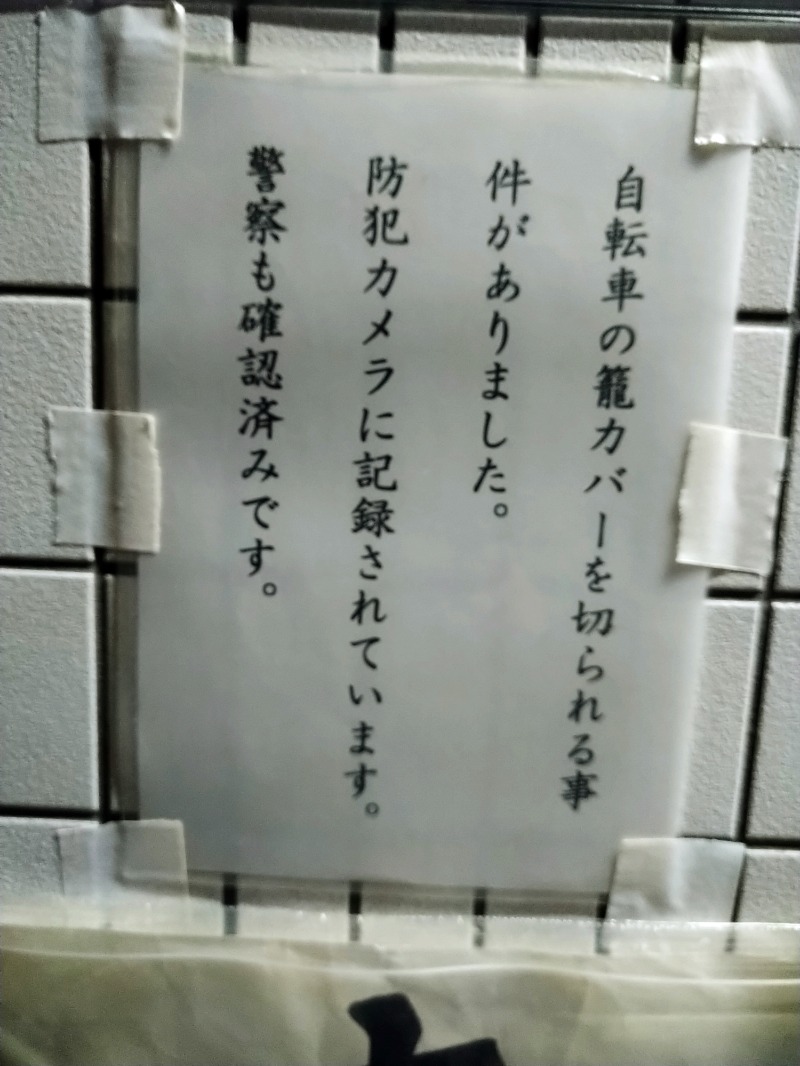 自転車の籠カバーを切られる事
件がありました。
防犯カメラに記録されています。
警察も確認済みです。